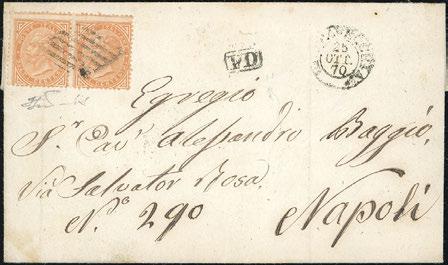 PD
25
OTT.
70
Egregio
S.r Cav.r Alessandro Baggio,
Via Salvator Rosa.
N.o 290 Napoli